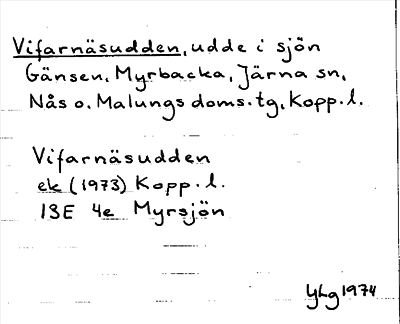 Vifarnäsudden, udde i sjön
Gänsen, Myrbacka, Järna sn,
Nås o. Malungs doms.tg, Kopp.l.
Vifarnäsudden
ek (1973) Kopp.l.
13E 4e Myrsjön
YLg 1974